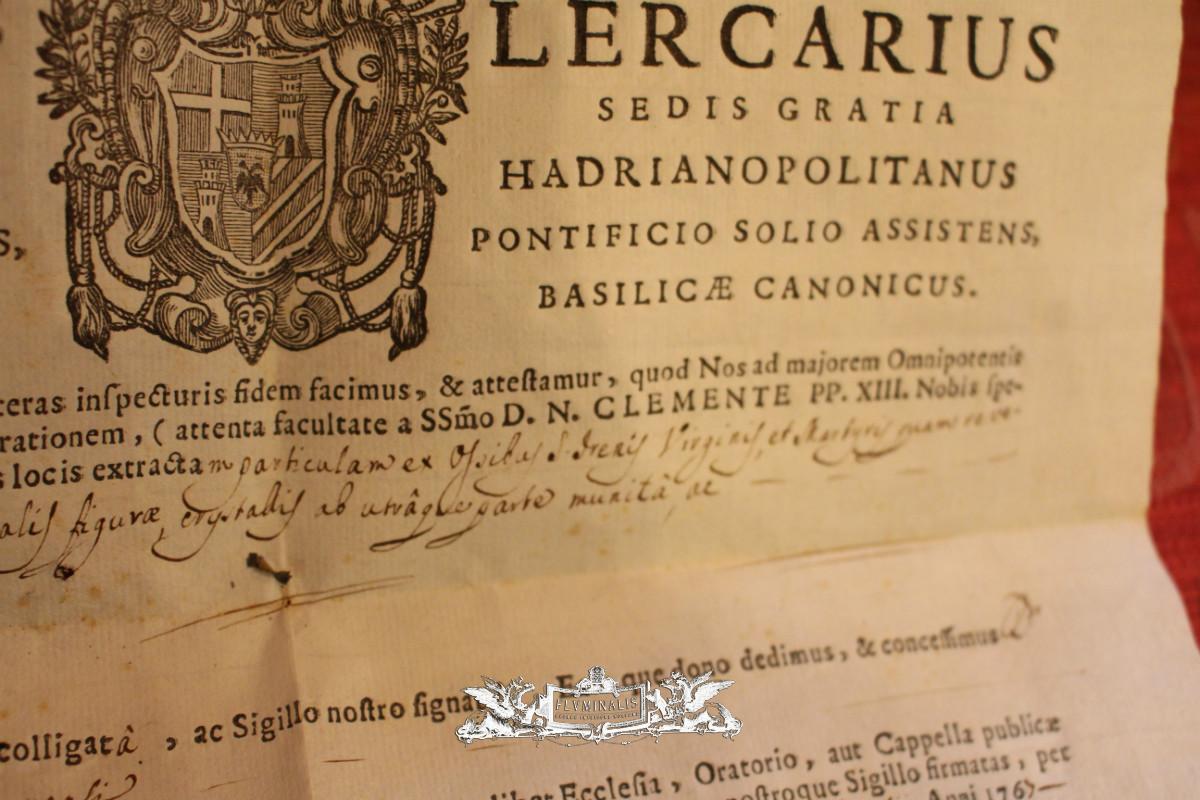 LERCARIUS
SEDIS GRATIA
HADRIANOPOLITANUS
S, PONTIFICIO SOLIO ASSISTENS,
BASILICÆ CANONICUS.
teras inſpecturis fidem facimus, & atteſtamur, quod Nos ad majorem Omnipotentis
rationem, ( attenta facultate a SSm̃o D. N. CLEMENTE PP. XIII. Nobis ſpe-
s locis extractam particulam ex Oſsibus S. Irenis Virginis, et Martyris quam reve-
alis figuræ, crystallis ab utrâque parte munitâ, ac
colligatâ, ac Sigillo noſtro ſigna que dono dedimus, & conceſſimus
FLVMINALIS
libet Eccleſia, Oratorio, aut Cappella publicæ
noſtroque Sigillo firmatas, per
Anni 1767